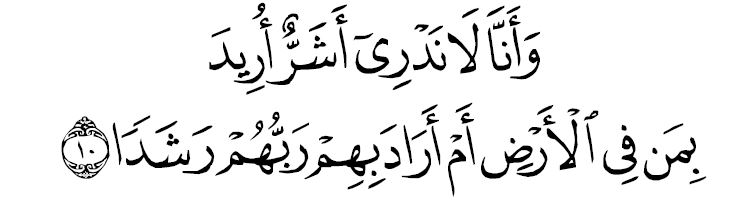 وَأَنَّا لَا نَدْرِىٓ أَشَرٌّ أُرِيدَ
بِمَن فِى ٱلْأَرْضِ أَمْ أَرَادَ بِهِمْ رَبُّهُمْ رَشَدًا ١٠